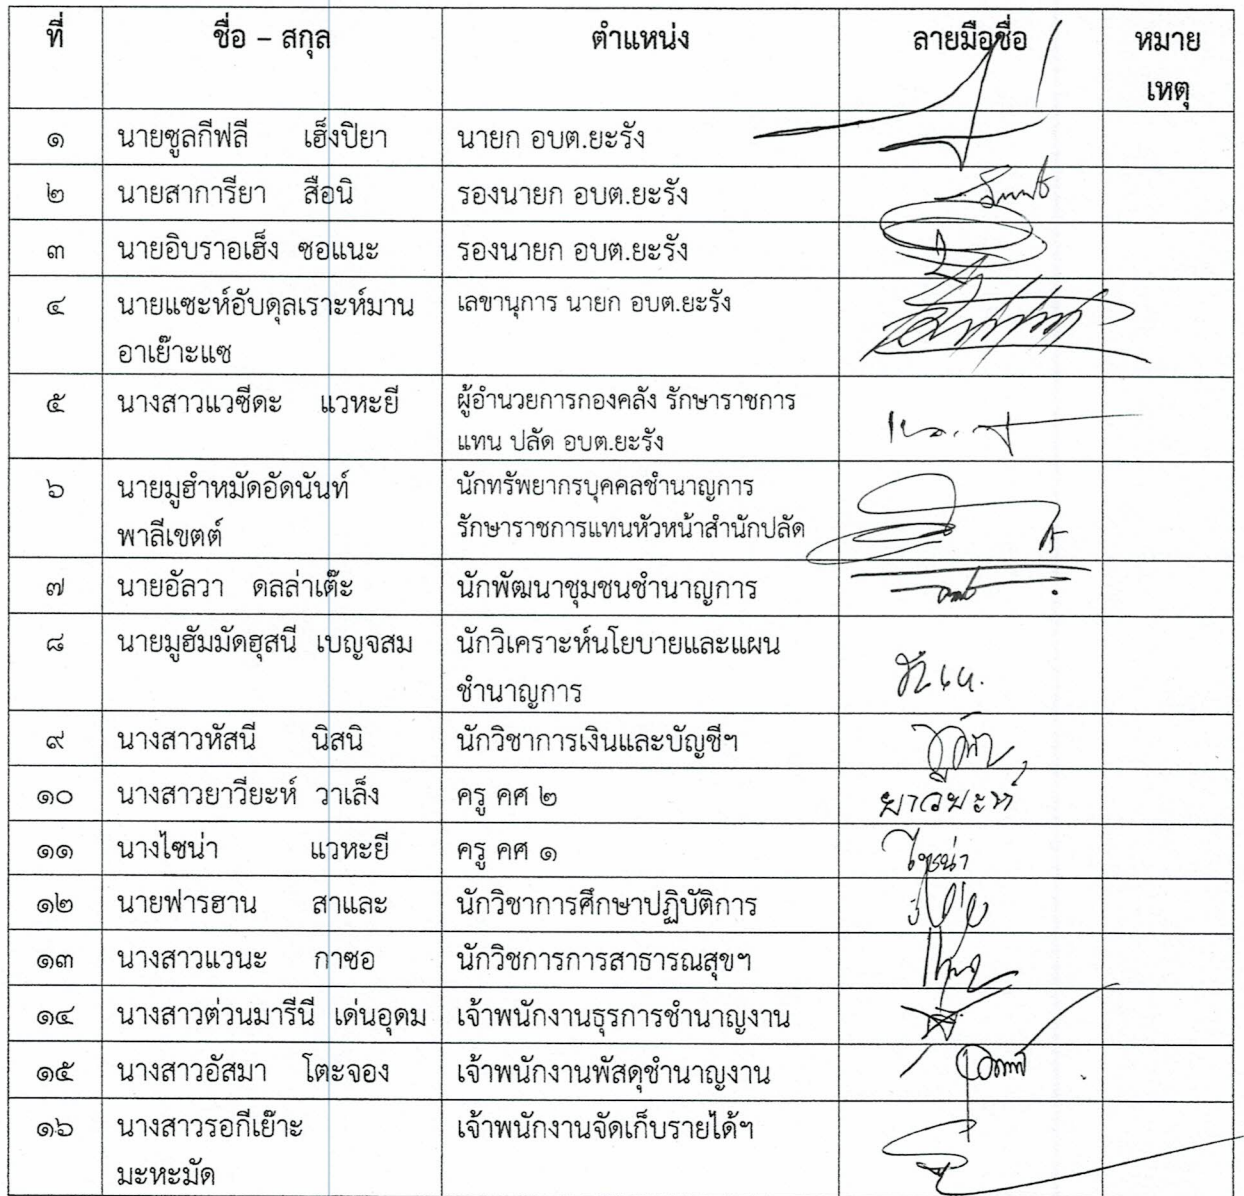 ที่ ชื่อ – สกุล ตำแหน่ง ลายมือชื่อ หมาย
เหตุ
๑ นายซูลกีฟลี เฮ็งปิยา นายก อบต.ยะรัง
๒ นายสาการียา สือนิ รองนายก อบต.ยะรัง
๓ นายอิบราอเฮ็ง ซอแนะ รองนายก อบต.ยะรัง
๔ นายแซะห์อับดุลเราะห์มาน เลขานุการ นายก อบต.ยะรัง
อาเย๊าะแซ
๕ นางสาวแวซีดะ แวหะยี ผู้อำนวยการกองคลัง รักษาราชการ
แทน ปลัด อบต.ยะรัง
๖ นายมูฮำหมัดอัดนันท์ นักทรัพยากรบุคคลชำนาญการ
พาลีเขตต์ รักษาราชการแทนหัวหน้าสำนักปลัด
๗ นายอัลวา ดลล่าเต๊ะ นักพัฒนาชุมชนชำนาญการ
๘ นายมูฮัมมัดฮุสนี เบญจสม นักวิเคราะห์นโยบายและแผน
ชำนาญการ
๙ นางสาวหัสนี นิสนิ นักวิชาการเงินและบัญชีฯ
๑๐ นางสาวยาวียะห์ วาเล็ง ครู คศ ๒ ยาวียะห์
๑๑ นางไซน่า แวหะยี ครู คศ ๑ ไซน่า
๑๒ นายฟารฮาน สาและ นักวิชาการศึกษาปฏิบัติการ
๑๓ นางสาวแวนะ กาซอ นักวิชการการสาธารณสุขฯ
๑๔ นางสาวต่วนมารีนี เด่นอุดม เจ้าพนักงานธุรการชำนาญงาน
๑๕ นางสาวอัสมา โตะจอง เจ้าพนักงานพัสดุชำนาญงาน
๑๖ นางสาวรอกีเย๊าะ เจ้าพนักงานจัดเก็บรายได้ฯ
มะหะมัด